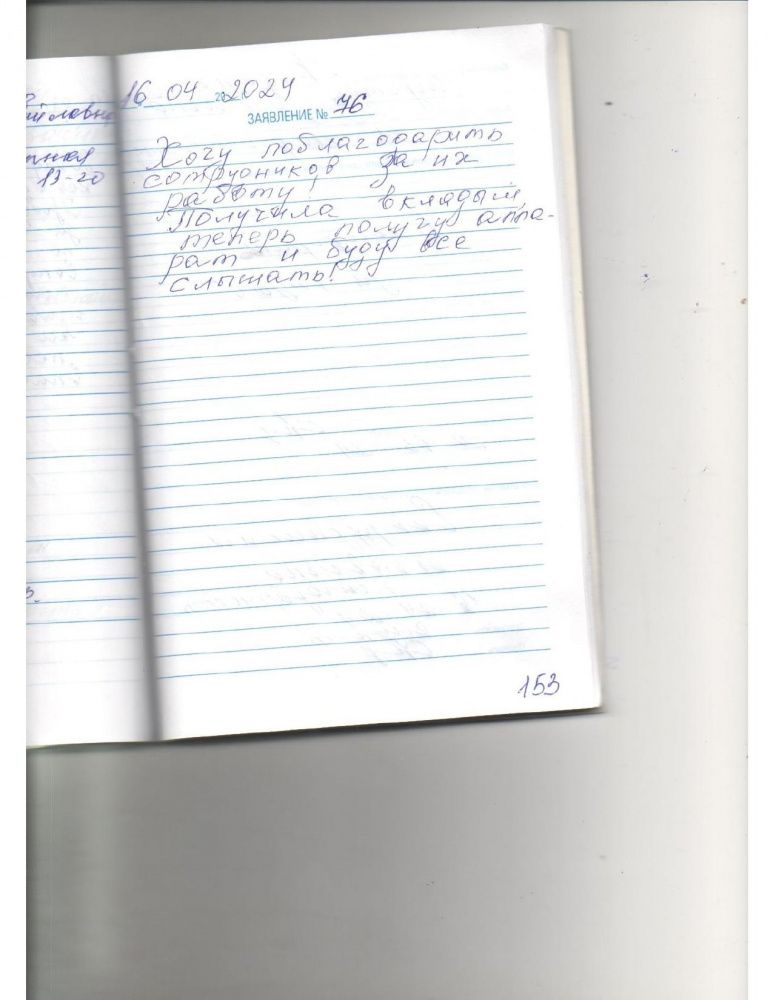 16 04 20 2024
ЗАЯВЛЕНИЕ № 76
Хочу поблагодарить
сотрудников за их
работу
Получила вкладыш,
теперь получу аппа-
рат и буду все
слышать!
19-20
153